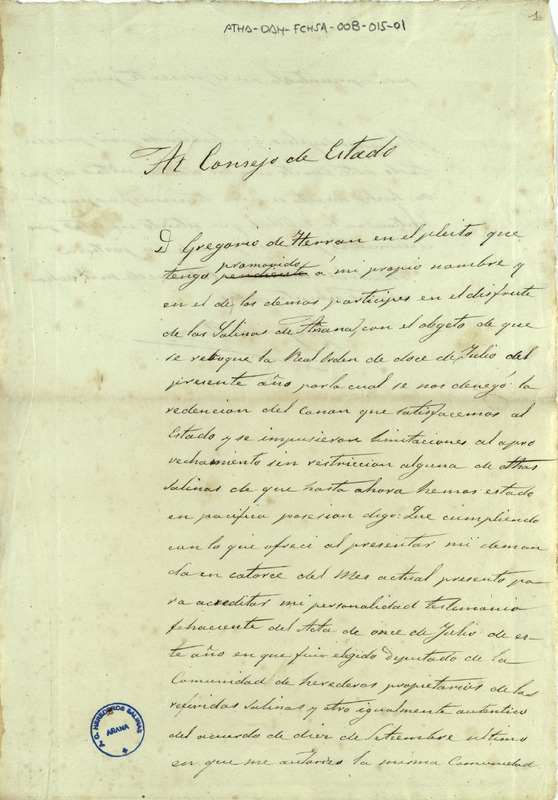 ATHA-DAH-FCHSA-008-015-01
1
Al Consejo de Estado
D Gregorio de Herran en el pleito que
promovido
tengo pendiente á mi propio nombre y
en el de los demas participes en el disfrute
de las Salinas de Añana, con el obgeto de que
se reboque la Real orden de doce de Julio del
presente año por la cual se nos denegó la
redencion del Canon que satisfacemos al
Estado y se impusieron limitaciones al apro
vechamiento sin restriccion alguna de dthas
Salinas de que hasta ahora hemos estado
en pacifica posesion digo: Que cumpliendo
con lo que ofreci al presentar mi deman
da en catorce del mes actual presento pa
ra acreditar mi personalidad testimonio
fehaciente del Acta de once de Julio de es-
te año en que fui elegido Diputado de la
Comunidad de herederos propietarios de las
referidas Salinas y otro igualmente autentico
del acuerdo de diez de Setiembre ultimo
en que me autorizo la misma Comunidad
HEREDEROS SALINAS
AÑANA